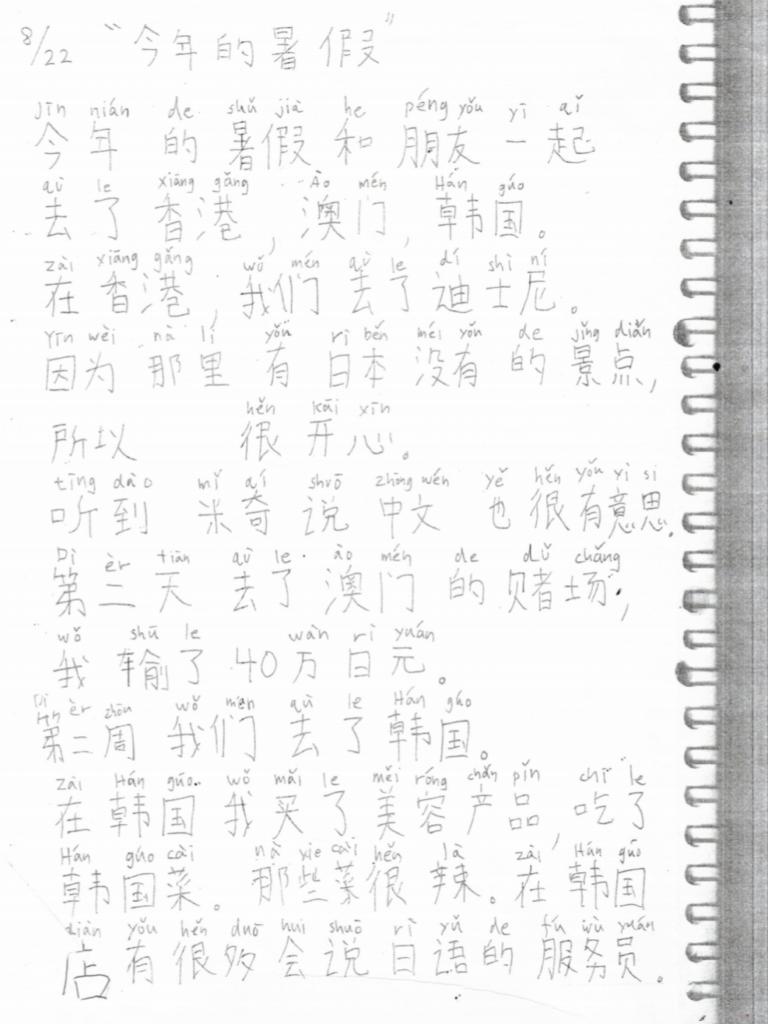 8/22 “今年的暑假”
jīn nián de shǔ jià he péng yǒu yī qǐ
今年 的 暑假 和 朋友 一 起
qù le xiāng gǎng Ào mén Hán gúo
去 了 香港, 澳门, 韩国。
zài xiāng gǎng wǒ mén qù le dí shì ní
在 香港, 我们 去了 迪士尼。
Yīn wèi nà lǐ yǒu rì běn méi yǒu de jǐng diǎn
因为 那里 有 日本 没有 的 景点,
hěn kāi xīn
所以 很 开心。
tīng dào mǐ qí shuō zhōng wén yě hěn yǒu yì si
听到 米奇 说 中文 也 很有意思。
Dì èr tiān qù le ào mén de dǔ chǎng
第二天 去了 澳门 的 赌场,
wǒ shū le wàn rì yuán
我 输了 40 万 日元。
Dì èr zhōu wǒ men qù le Hán gúo
第二周 我们 去 了 韩国。
zài Hán gúo wǒ mǎi le měi róng chǎn pǐn chī le
在 韩国 我 买了 美容产品, 吃了
Hán gúo cài nà xie cài hěn là zài Hán gúo
韩国菜。 那些菜很 辣。 在 韩国
diàn yǒu hěn duō hui shuō rì yǔ de fú wù yuán
店 有 很多 会 说 日语 的 服务员。